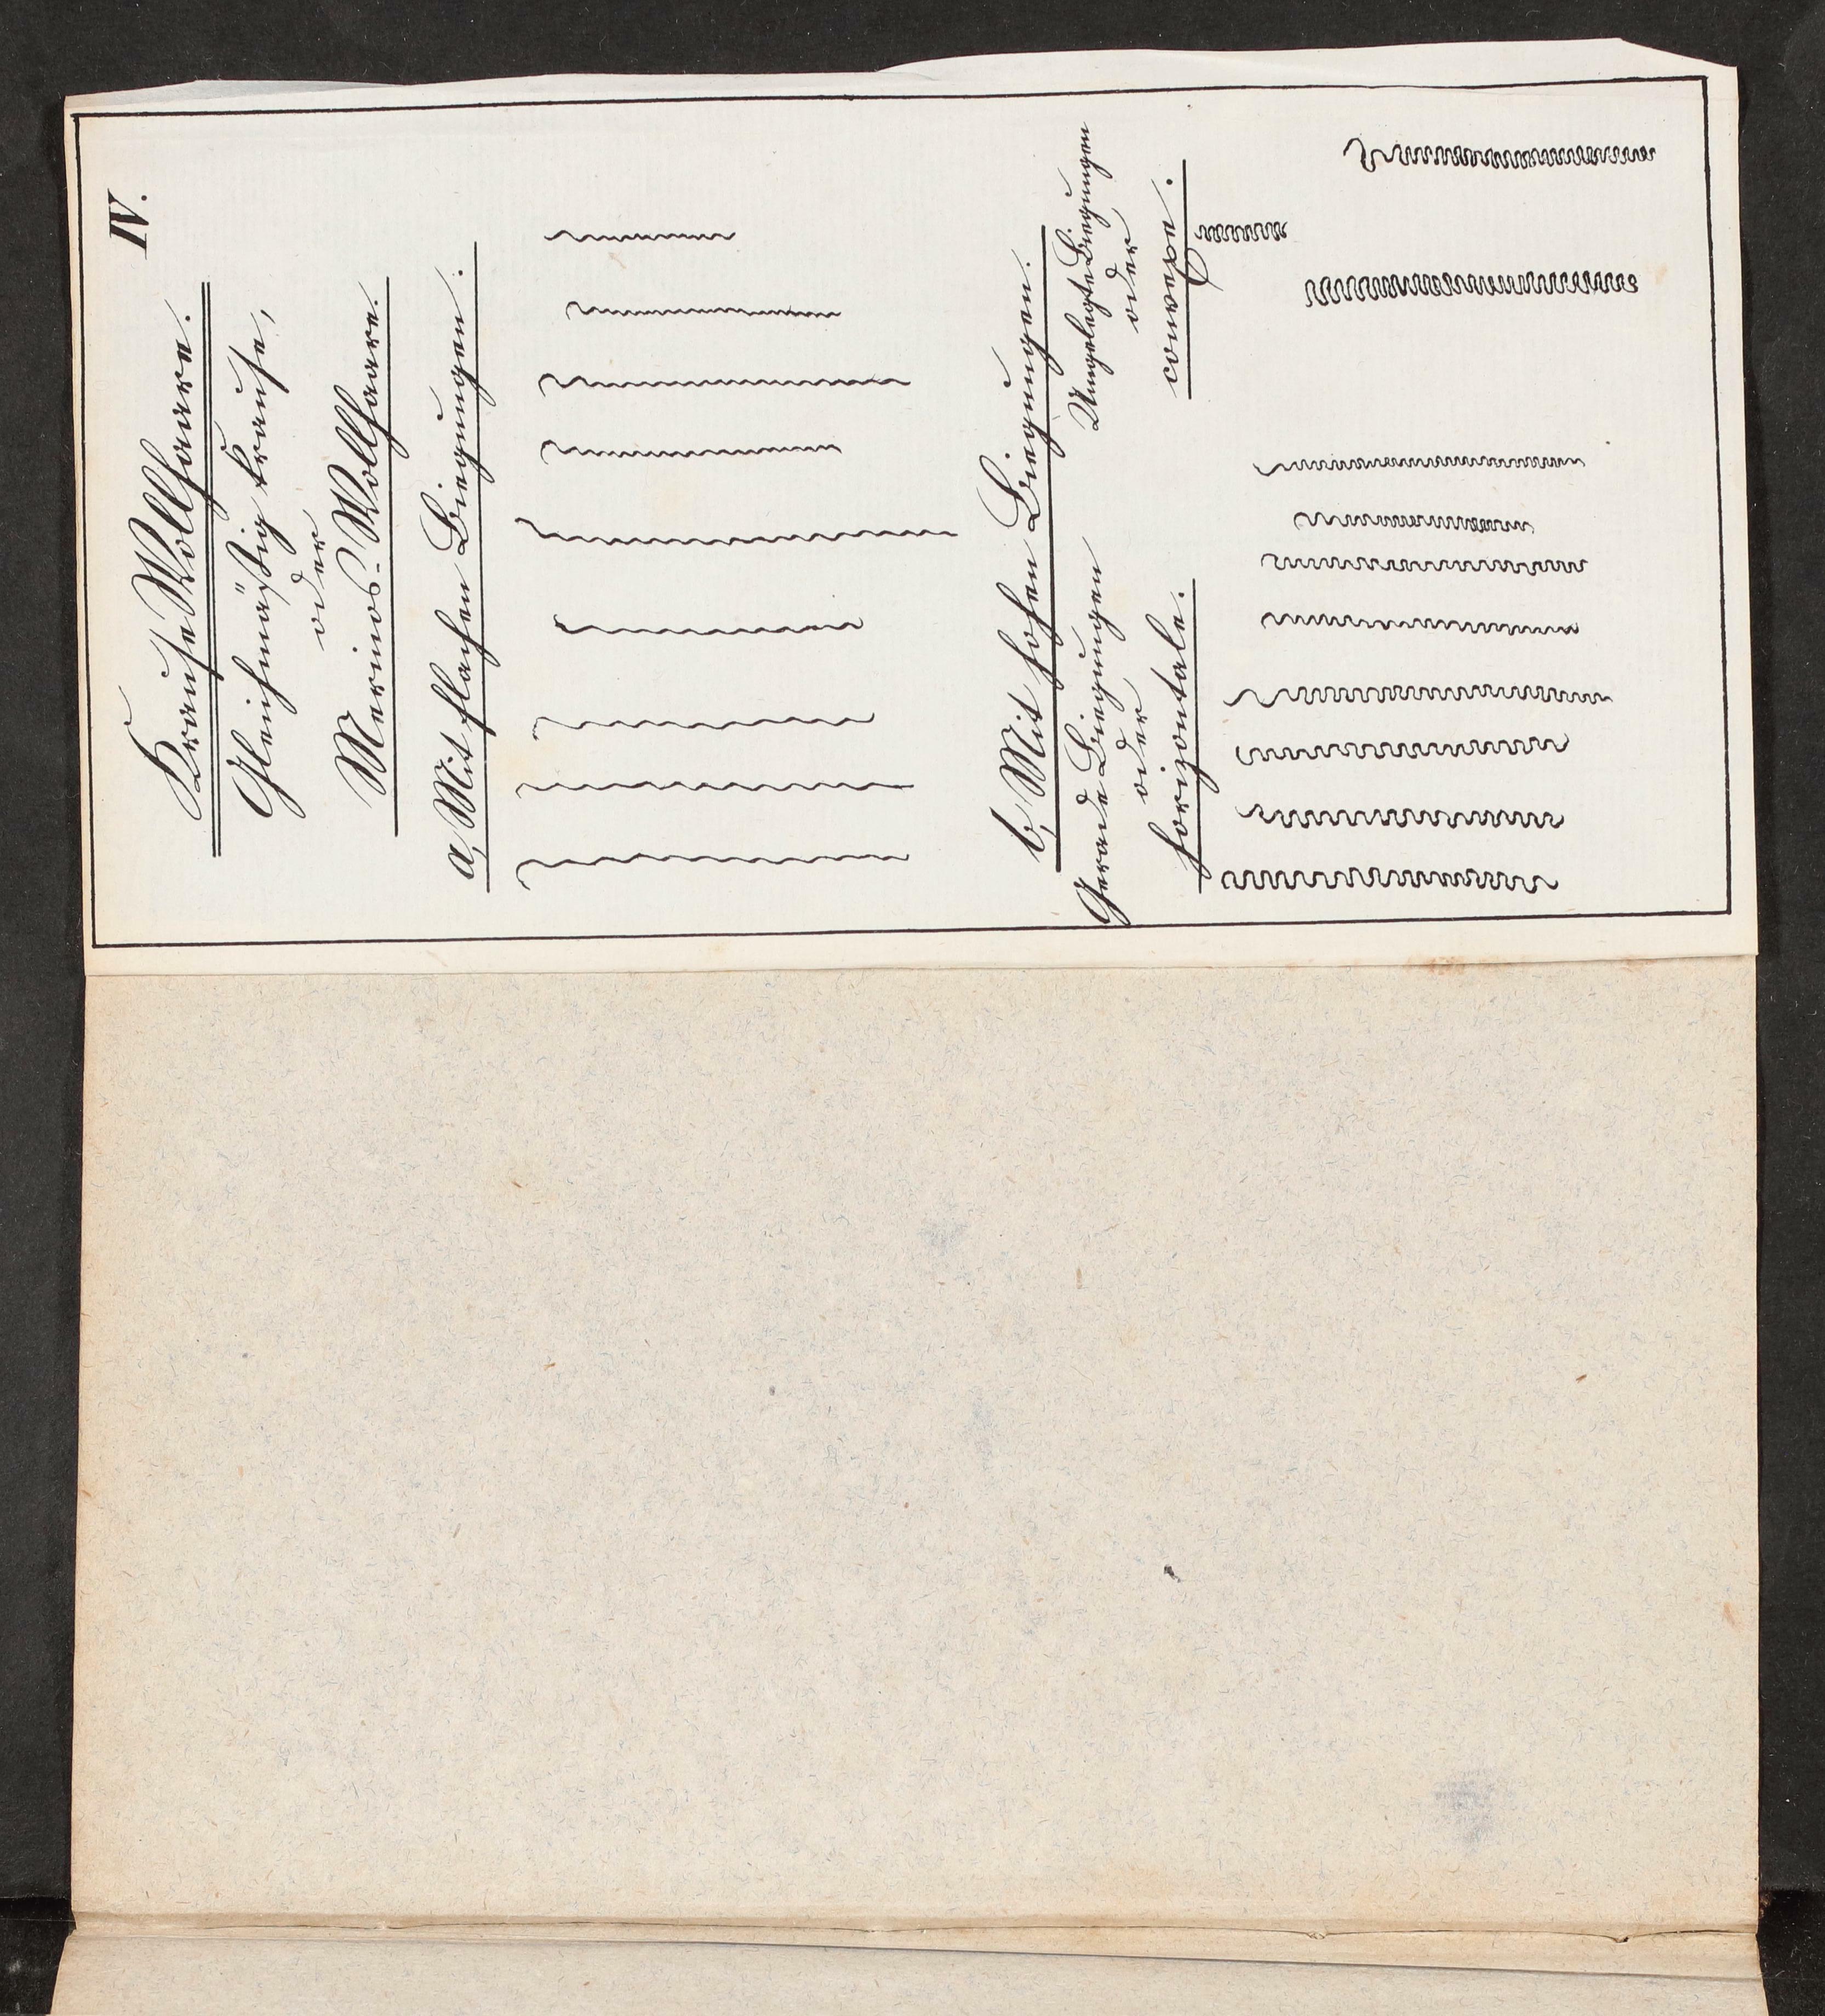 IV.
Krause Wollhaare.
Gleichmäßig krause,
oder
Merinos-Wollhaare.
a, Mit flachen Biegungen.
b, Mit hohen Biegungen.
Gerade Biegungen
oder
horizontale.
Umgelegte Biegungen
oder
convexe.